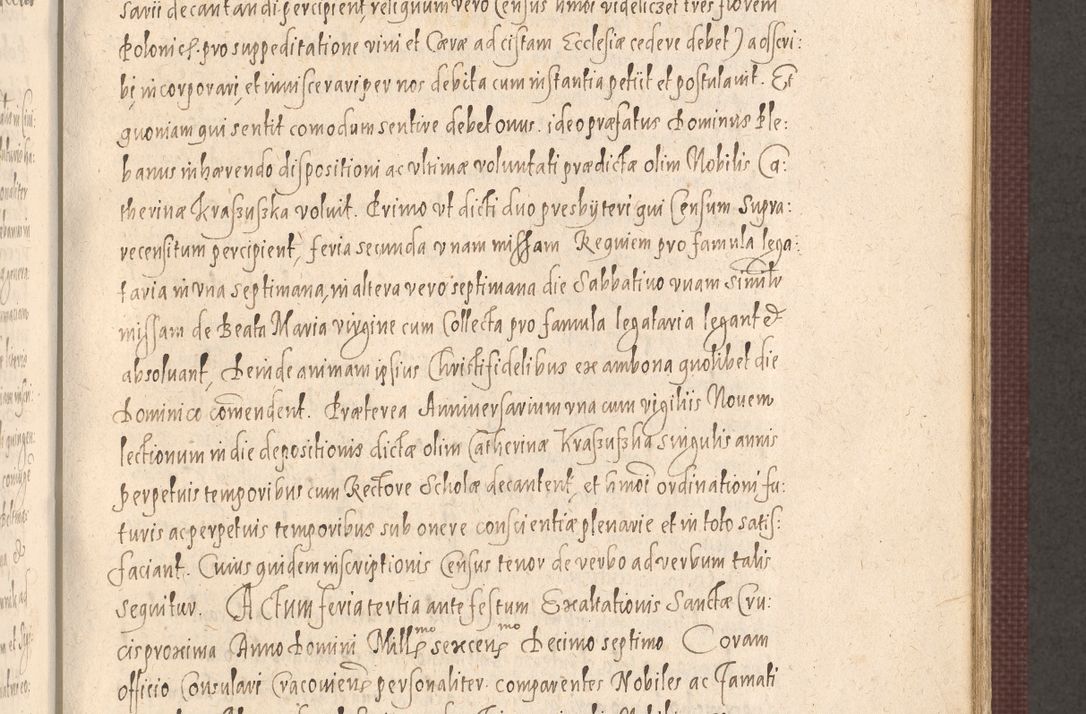 sarii decantandi percipient, reliquum vero Census hmoi videliczet tres florem
Polonicł. pro suppeditatione vini et Ceræ ad cistam Ecclesiæ cedere debet) adscri:
bi, incorporari, et inviscerari per nos debita cum instantia petiit et postulavit. Et
quoniam qui sentit comodum sentire debet onus. ideo præfatus Dominus Ple:
banus inhærendo dispositioni ac vltimæ voluntati prædictæ olim Nobilis Ca:
therinæ Kraszuszka voluit. Primo vt dicti duo presbÿteri qui Censum Supra:
recensitum percipient, feria secunda vnam missam Requiem pro famula lega:
taria in vna septimana, in altera vero septimana die Sabbativo vnam similr
missam de Beata Maria virgine cum Collecta pro famula legataria legant et
absoluant, Deinde animam ipsius Christifidelibus ex ambona quolibet die
Dominico comendent. Præterea Anniversarium vna cum vigiliis Novem
lectionum in die depositionis dictæ olim Catherinæ Kraszuszka singulis annis
perpetuis temporibus cum Rectore Scholæ decantent, et hmoi ordinationi fu:
turis ac perpetuis temporibus sub onere conscientiæ plenarie et in toto satis:
faciant. Cuius quidem inscriptionis Census tenor de verbo ad verbum talis
sequitur. ACtum feria tertia ante festum Exaltationis Sanctæ Cru:
cis proxima Anno Domini Mill̃mo sexcenmo Decimo septimo Coram
officio Consulari Cracovien personaliter comparentes Nobiles ac Famati